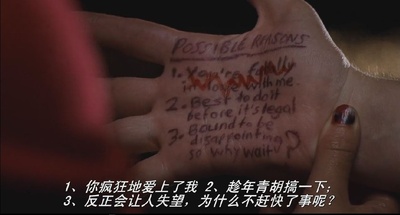 POSSIBLE REASONS
1. You're
in love with me.
2. Best to do it
before it's legal
3. Bound to be
disappointing
so why wait?
1、你疯狂地爱上了我 2、趁年青胡搞一下;
3、反正会让人失望，为什么不赶快了事呢？